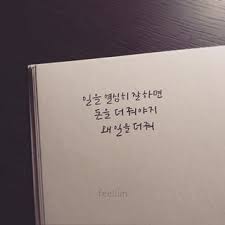 일을 열심히 잘하면
돈을 더 줘야지
왜 일을 더 줘
feellim